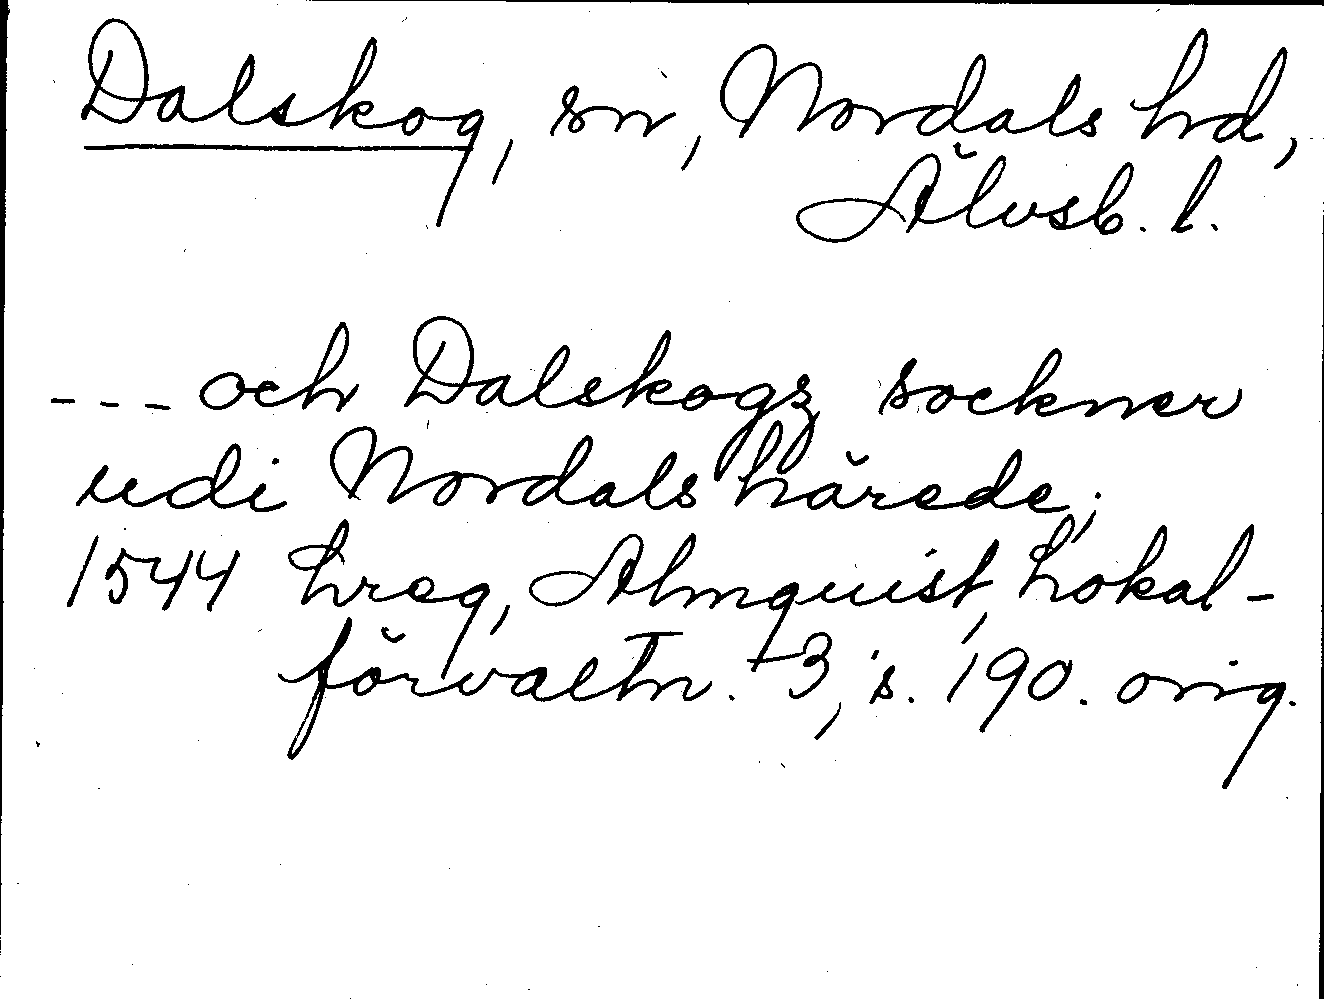 Dalskog, sn, Nordals hd,
Älvsb. l.
--- och Dalskogz sockner
udi Nordals härede;
1544 Lreg, Almquist, Lokal-
förvaltn. 3, s. 190. orig.